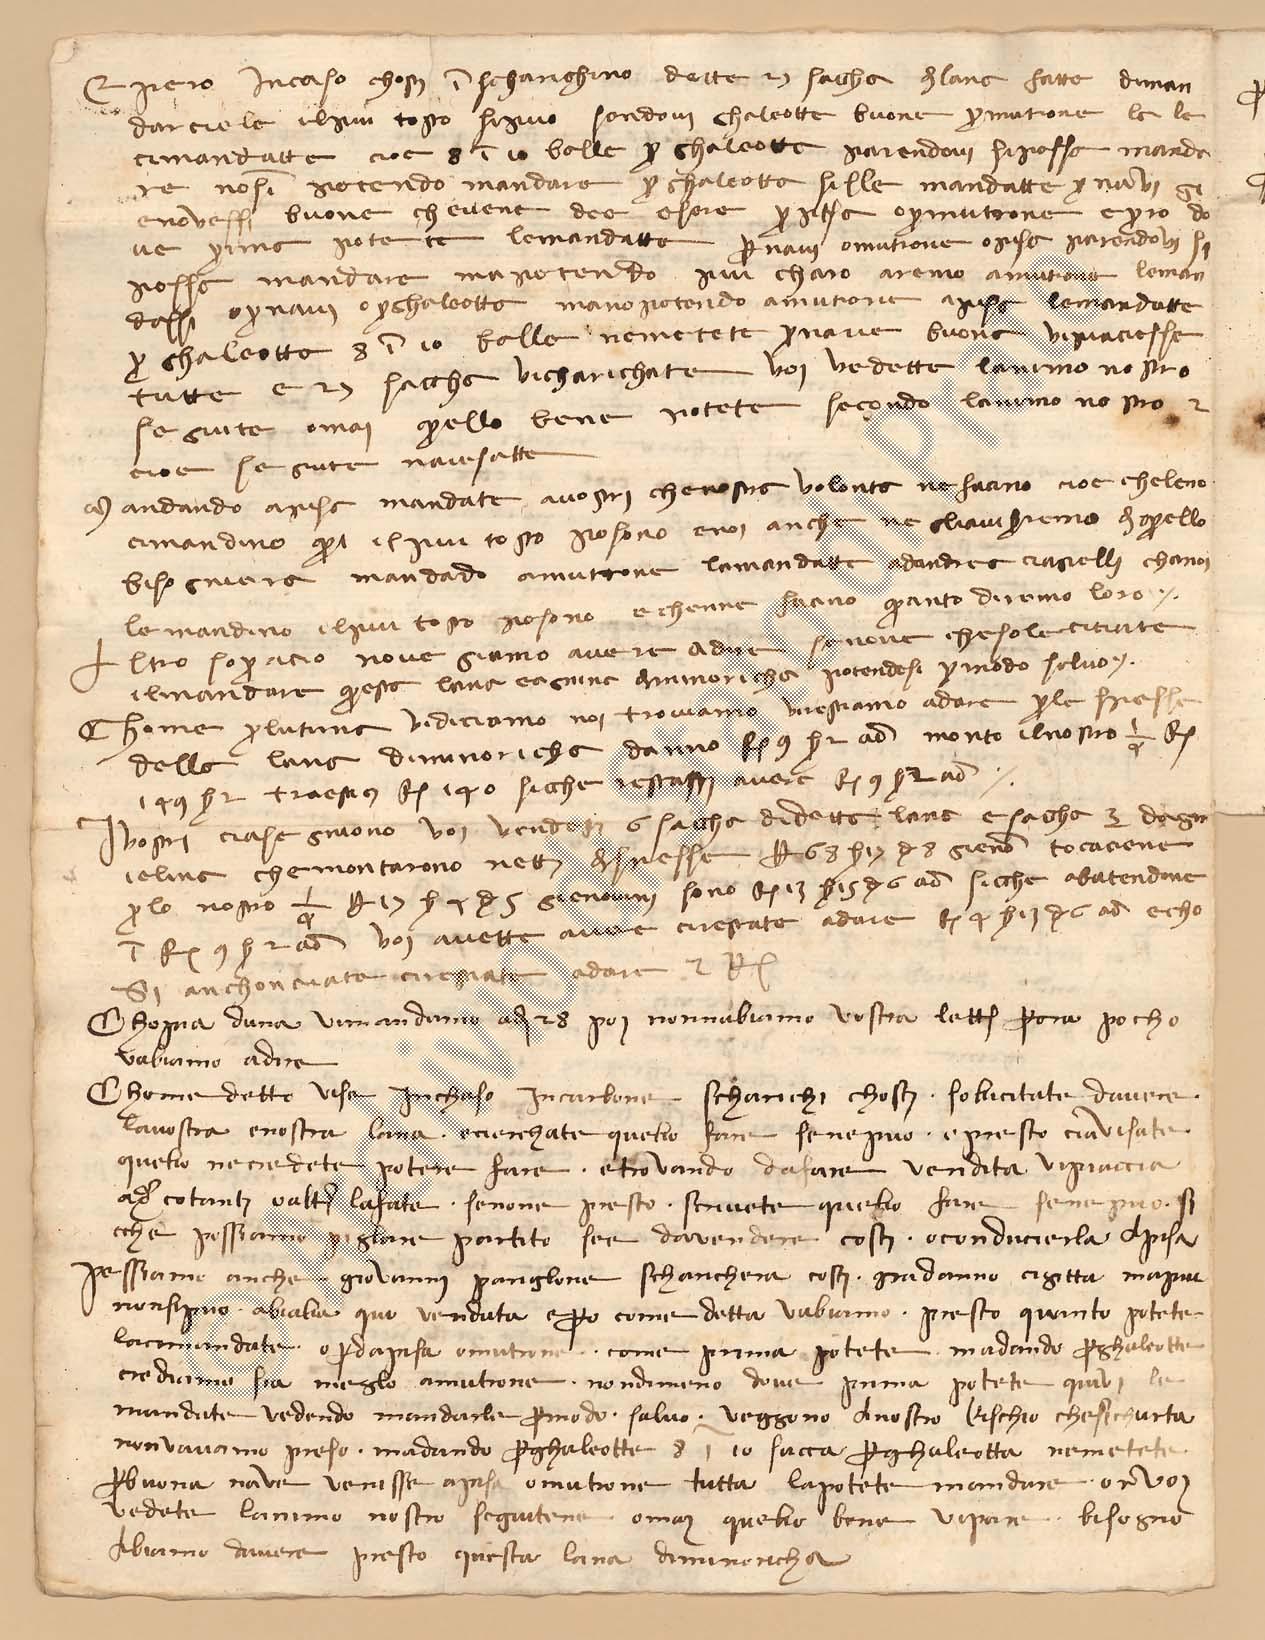 E pero in caso chosti ischarighino dette 27 saccha di lana fatte diman
darciele il piu tosto si puo sendovi ghaleotte buone per mutrone le le
ci mandatte cioe 8 i 10 balle per ghaleotta parendovi si possa manda
re nosì potendo mandare per ghaleotte sille mandatte per navi ge
enovessi buone che vene dee esere per pisa o per mutrone e pero do
ve prima potete le mandatte per navi o mutrone o pisa parendovi si
possa mandare ma potendo piu charo aremo a mutrone le man
dassi o per navi o per ghaleotte ma no potendo a mutrone a pisa le mandatte
per ghaleotta 8 i 10 balle ne metete per nave buona vi piaciesse
tutte e 27 saccha vi charichate voi vedette l animo nostro
seguite omai quello bene potete secondo l animo nostro
cioe seguite n avisatte
Mandando a pisa mandate a vostri che nostra volonta ne facino cioe che le no
ci mandino qui il piu tosto posono e noi anche ne gli aviseremo di quello
bisogniera mandado a mutrone la mandatte ad andrea ciapelli cha noi
le mandino il piu tosto posono e che ne facino quanto diremo loro
Altro sopra cio nove giamo avere a dire se none che solecitiate
il mandare questa lana e agnina di minoricha potendosi per modo salvo
Chome per l utima vi diciamo noi troviamo vi restiamo a dare per le spesse
della lana di minoricha danno R 9 s 2 ad monto il nostro 1/4 R
149 s 2 traesti R 140 sicche restasti avere R 9 s 2 ad
I vostri ci asegniono voi vendesti 6 saccha di detta lana e saccha 3 d agni
ielina che montarono netti di spesse R 68 s 17 d 8 gieno tocaciene
per lo nostro 1/4 R 17 s 4 d 5 gienovini sono R 13 s 15 d 6 ad sicche abatendone
i R 9 s 2 ad voi avette avere ci restate a dare R 4 s 13 d 6 ad e cho
si anchonciate ci restate a dare
Chopia d una vi mandamo a di 28 poi nonn abiamo vostra lettera per ora pocho
v abiamo a dire
Chome detto v ise in chaso in carbone scharichi chosti sollicitate d avere
la vostra e nostra lana e cierchate quello fare se ne puo e presto ci avisate
quello ne credete potere fare e trovando da fare vendita vi piaccia
a di cotanti o altri la fate se none presto scrivete quello fare se ne puo si
cche possiamo pigliare partito see da vendere costi o conducierla a pisa
Pessiamo anche giovanni panglone schanchera costi
non si puo abiatela quo venduta e pero come detta v abiamo presto quanto potete
la ci mandate o per da pisa o mutrone come prima potete madando per ghaleotte
crediamo sia meglo a mutrone nondimeno dove prima potete quivi le
mandate vedendo mandarle per modo salvo veggono a nostro rischio che sichurta
non v avamo preso madando per ghaleotte 8 i 10 sacca per ghaleotta ne metete
per buona nave venisse a pisa o mutrone tutta la potete mandare or voi
vedete l animo nostro seguitene omai quello bene vi pare bisogno
abiamo d avere presto questa lana di minoricha